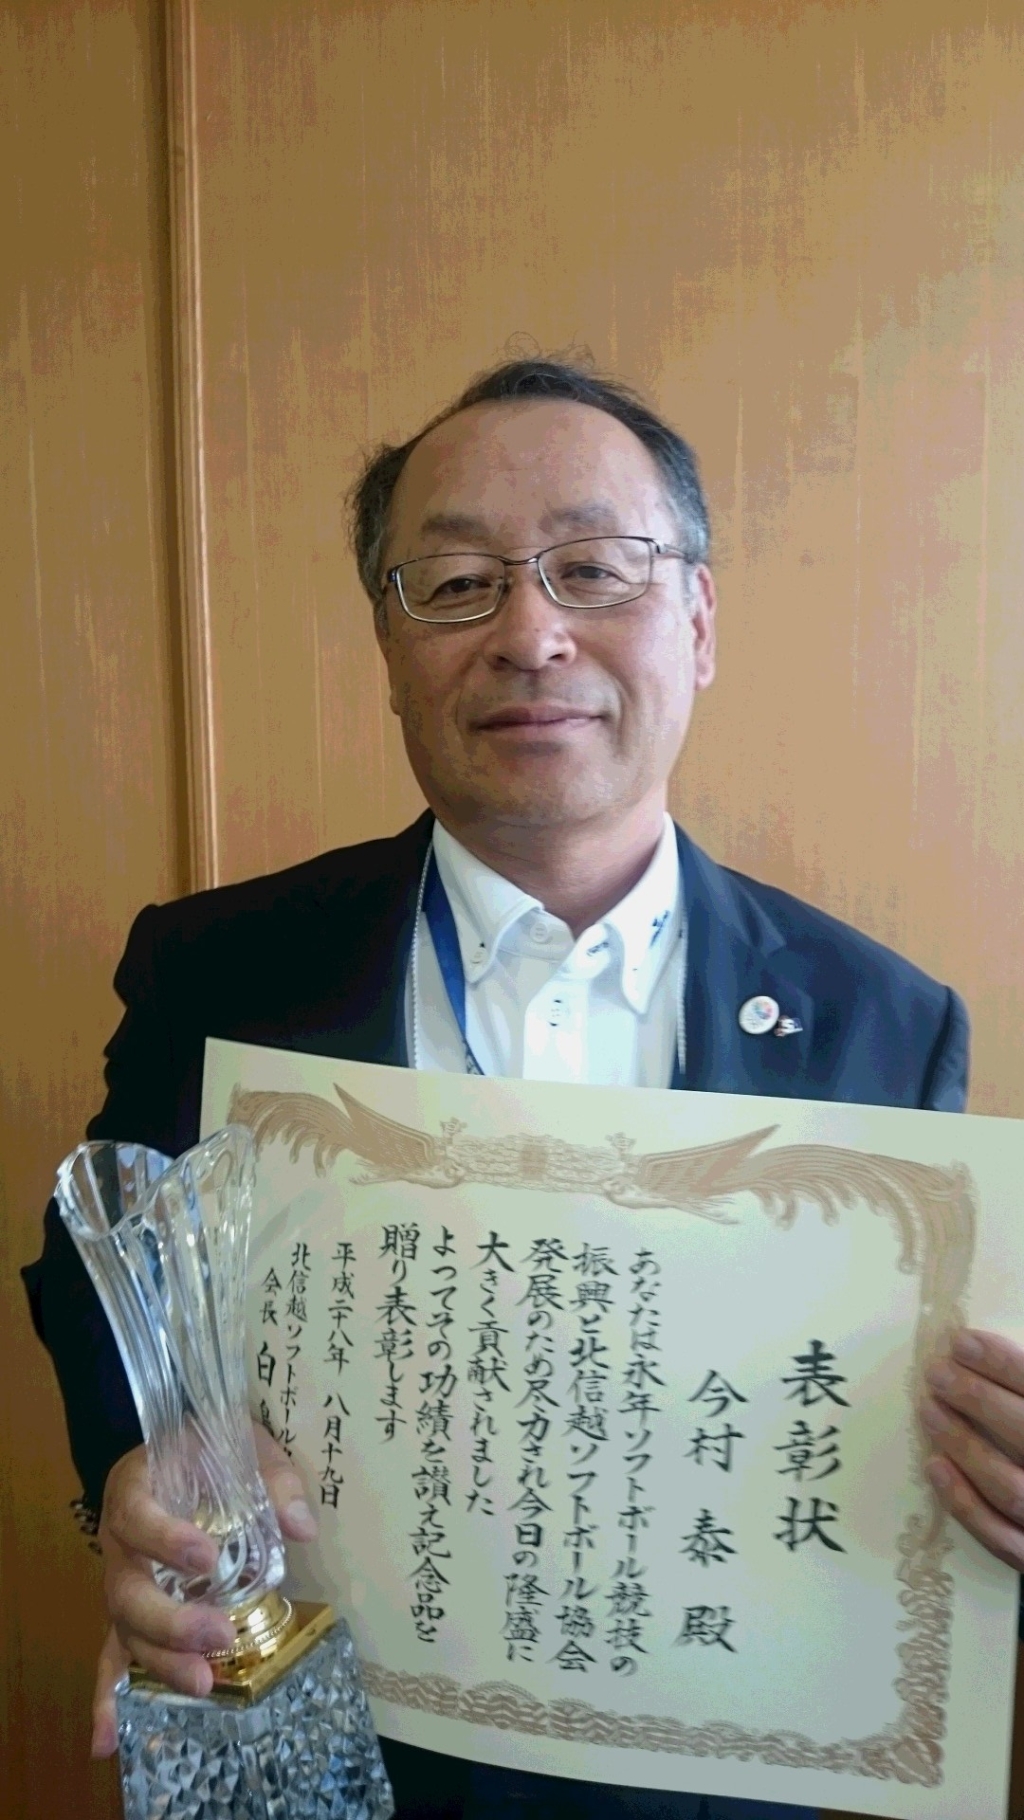 表彰状
今村 泰 殿
あなたは永年ソフトボール競技の
振興と北信越ソフトボール協会
発展のため尽力され今日の隆盛に
大きく貢献されました
よってその功績を讃え記念品を
贈り表彰します
平成二十八年 八月十九日
北信越ソフトボール
会長 白